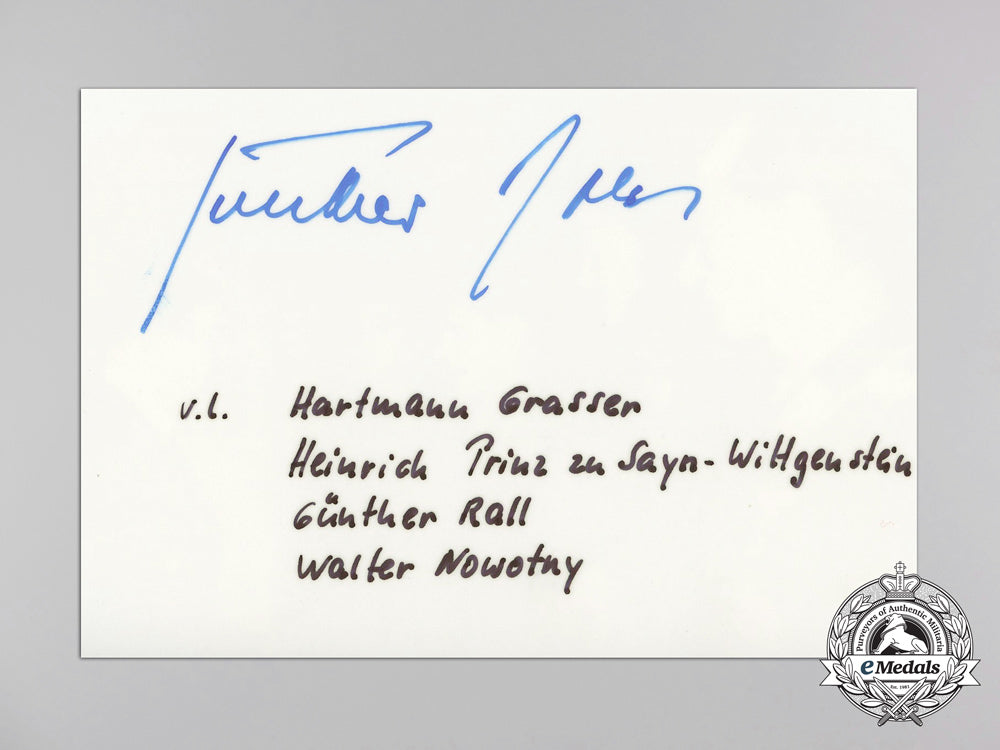 Günther
v.l. Hartmann Grasser
Heinrich Prinz zu Sayn-Wittgenstein
Günther Rall
Walter Nowotny
Purveyors of Authentic Militaria
eMedals
Est. 1981